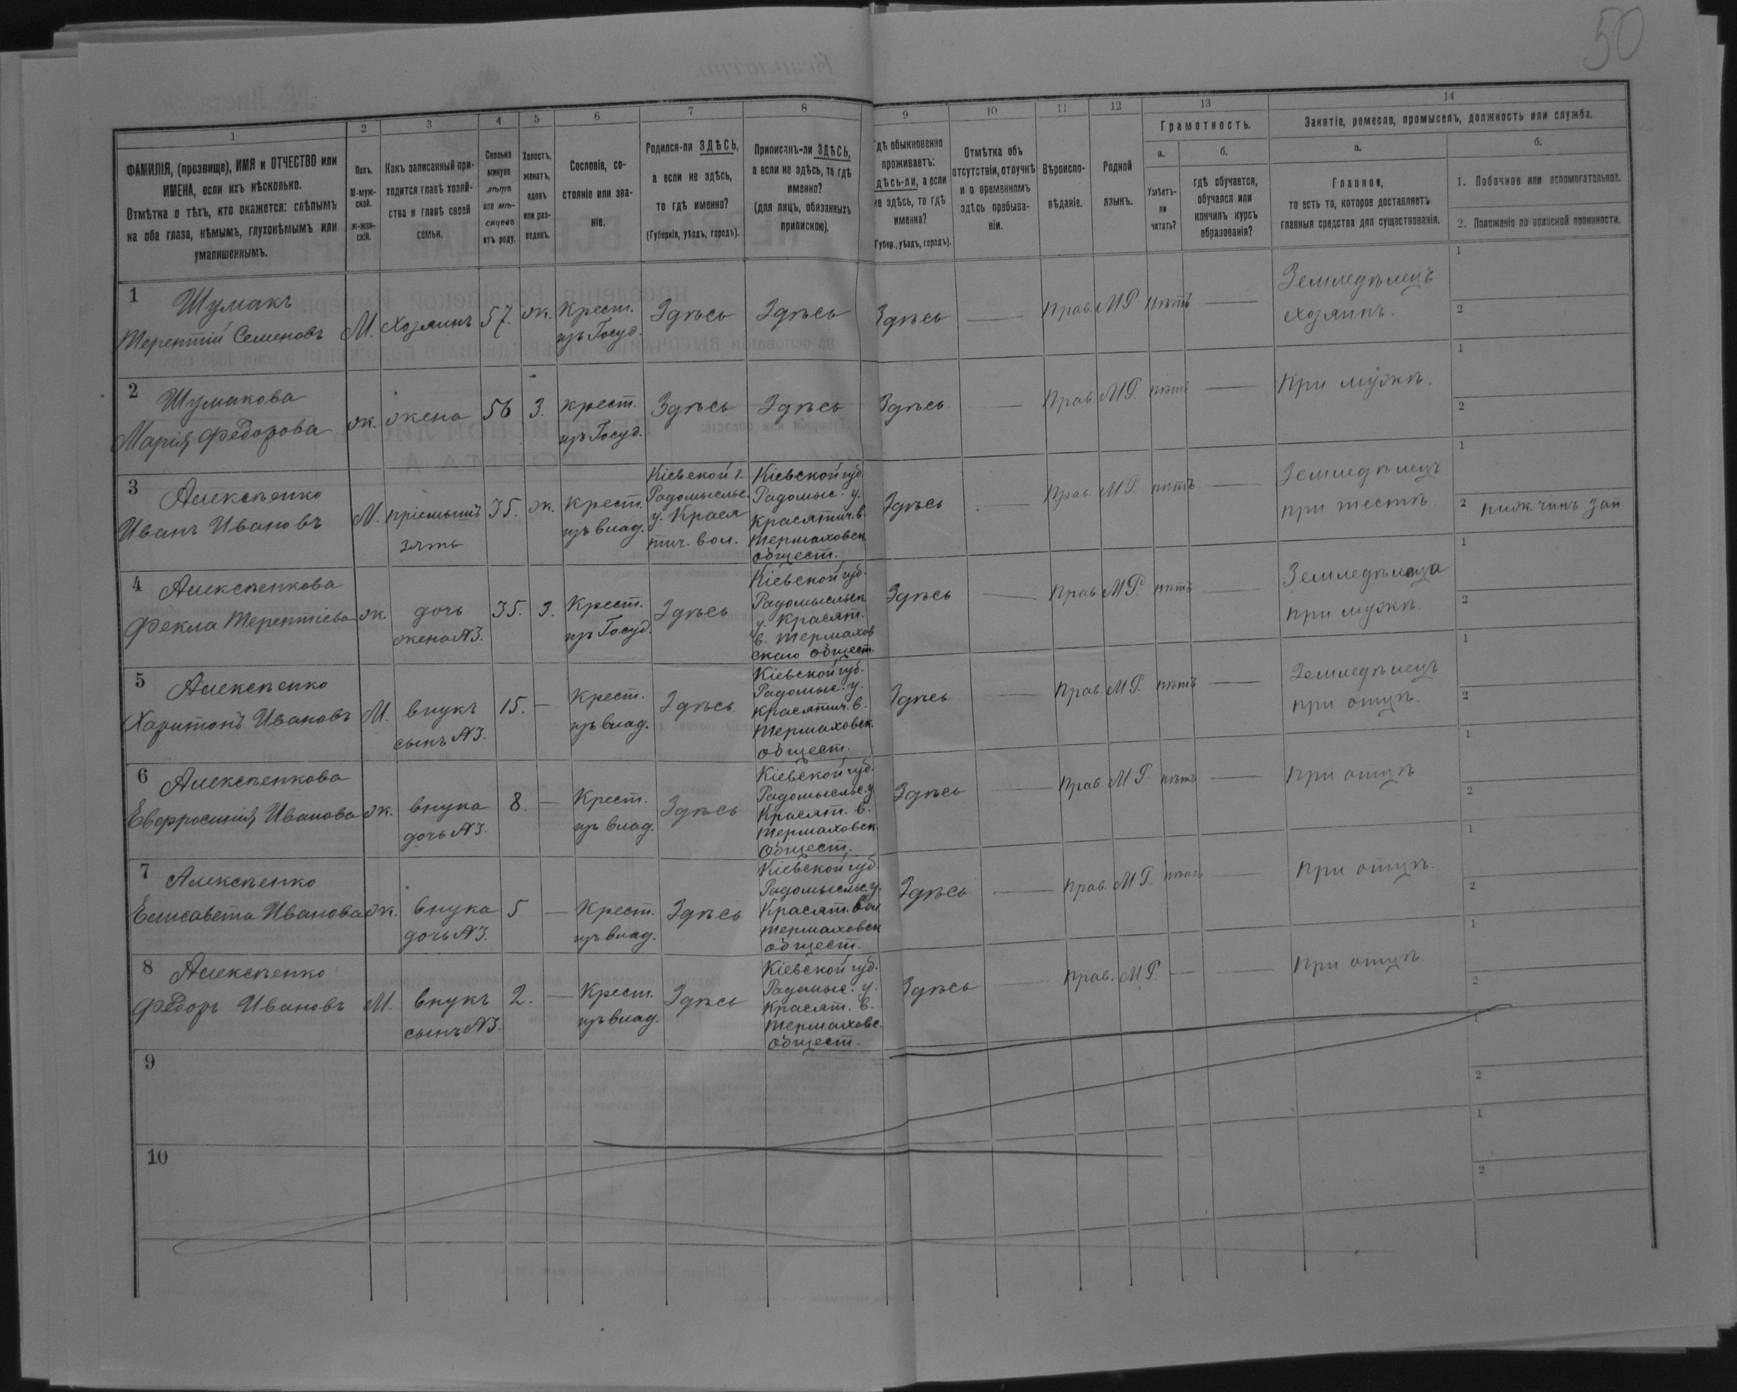 50
1 2 3 4 5 6 7 8 9 10 11 12 13 14
ФАМИЛІЯ, (прозвище), ИМЯ и ОТЧЕСТВО или
ИМЕНА, если ихъ нѣсколько.
Отмѣтка о тѣхъ, кто окажется: слѣпымъ
на оба глаза, нѣмымъ, глухонѣмымъ или
умалишеннымъ.
Полъ.
М-муж-
ской.
Ж-жен-
скій.
Какъ записанный при-
ходится главѣ хозяй-
ства и главѣ своей
семьи.
Сколько
минуло
лѣтъ
или мѣ-
сяцевъ
отъ роду.
Холостъ,
женатъ,
вдовъ
или раз-
веденъ.
Сословіе, со-
стояніе или зва-
ніе.
Родился-ли ЗДѢСЬ,
а если не здѣсь,
то гдѣ именно?
(Губернія, уѣздъ, городъ).
Приписанъ-ли ЗДѢСЬ,
а если не здѣсь, то гдѣ
именно?
(для лицъ, обязанныхъ
припискою).
Гдѣ обыкновенно
проживаетъ:
здѣсь-ли, а если
не здѣсь, то гдѣ
именно?
(Губер., уѣздъ, городъ).
Отмѣтка объ
отсутствіи, отлучкѣ
и о временномъ
здѣсь пребыва-
ніи.
Вѣроиспо-
вѣданіе.
Родной
языкъ.
Грамотность.
а.
Умѣетъ-
ли
читать?
б.
гдѣ обучается,
обучался или
кончилъ курсъ
образованія?
Занятіе, ремесло, промыселъ, должность или служба.
а.
Главное,
то есть то, которое доставляетъ
главныя средства для существованія.
б.
1. Побочное или вспомогательное.
2. Положеніе по воинской повинности.
1 Шумакъ
Терентій Семеновъ М. хозяинъ 57. ж. Крест. изъ Госуд. Здѣсь Здѣсь Здѣсь — Прав. М Р. нѣтъ — Земледѣлецъ хозяинъ. 1 2
2 Шумакова
Марія Федорова ж. жена 56 З. крест. изъ Госуд. Здѣсь Здѣсь Здѣсь — Прав. М Р. нѣтъ — При мужѣ. 1 2
3 Алексѣенко
Иванъ Ивановъ М. пріемышъ зять 35. ж. Крест. изъ влад.
Кіевской г.
Радомысльс.
у. Крася
тич. вол.
Кіевской губ.
Радомыс. у.
Красятич. в.
Термаховск
общест.
Здѣсь — Прав. М Р. нѣтъ — Земледѣлецъ при тестѣ. 1 2
4 Алексѣенкова
Фекла Терентіева ж. дочь жена №3. 35. з. Крест. изъ Госуд. Здѣсь
Кіевской губ.
Радомысльск
у. Красят.
в. Термахов
скаго общест.
Здѣсь — Прав. М Р. нѣтъ — Земледѣлица при мужѣ. 1 2
5 Алексѣенко
Харитонъ Ивановъ М. внукъ сынъ №3. 15. — Крест. изъ влад. Здѣсь
Кіевской губ.
Радомыс. у.
Красятич. в.
Термаховск
общест.
Здѣсь — Прав. М Р. нѣтъ — Земледѣлецъ при отцѣ. 1 2
6 Алексѣенкова
Евфросинія Иванова ж. внука дочь №3. 8. — Крест. изъ влад. Здѣсь
Кіевской губ.
Радомысльс. у
Красят. в.
Термаховск
Общест.
Здѣсь — Прав. М Р. нѣтъ — При отцѣ 1 2
7 Алексѣенко
Елисавета Иванова ж. внука дочь №3. 5 — Крест. изъ влад. Здѣсь
Кіевской губ
Радомысльс. у.
Красят. вол
Термаховск
общест.
Здѣсь — Прав. М Р. нѣтъ — При отцѣ. 1 2
8 Алексѣенко
Федоръ Ивановъ М. внукъ сынъ №3. 2. — Крест. изъ влад. Здѣсь
Кіевской губ.
Радомыс. у.
Красят. в.
Термаховс.
Общест.
Здѣсь — Прав. М.Р. — — При отцѣ 1 2
9 1 2
10 1 2